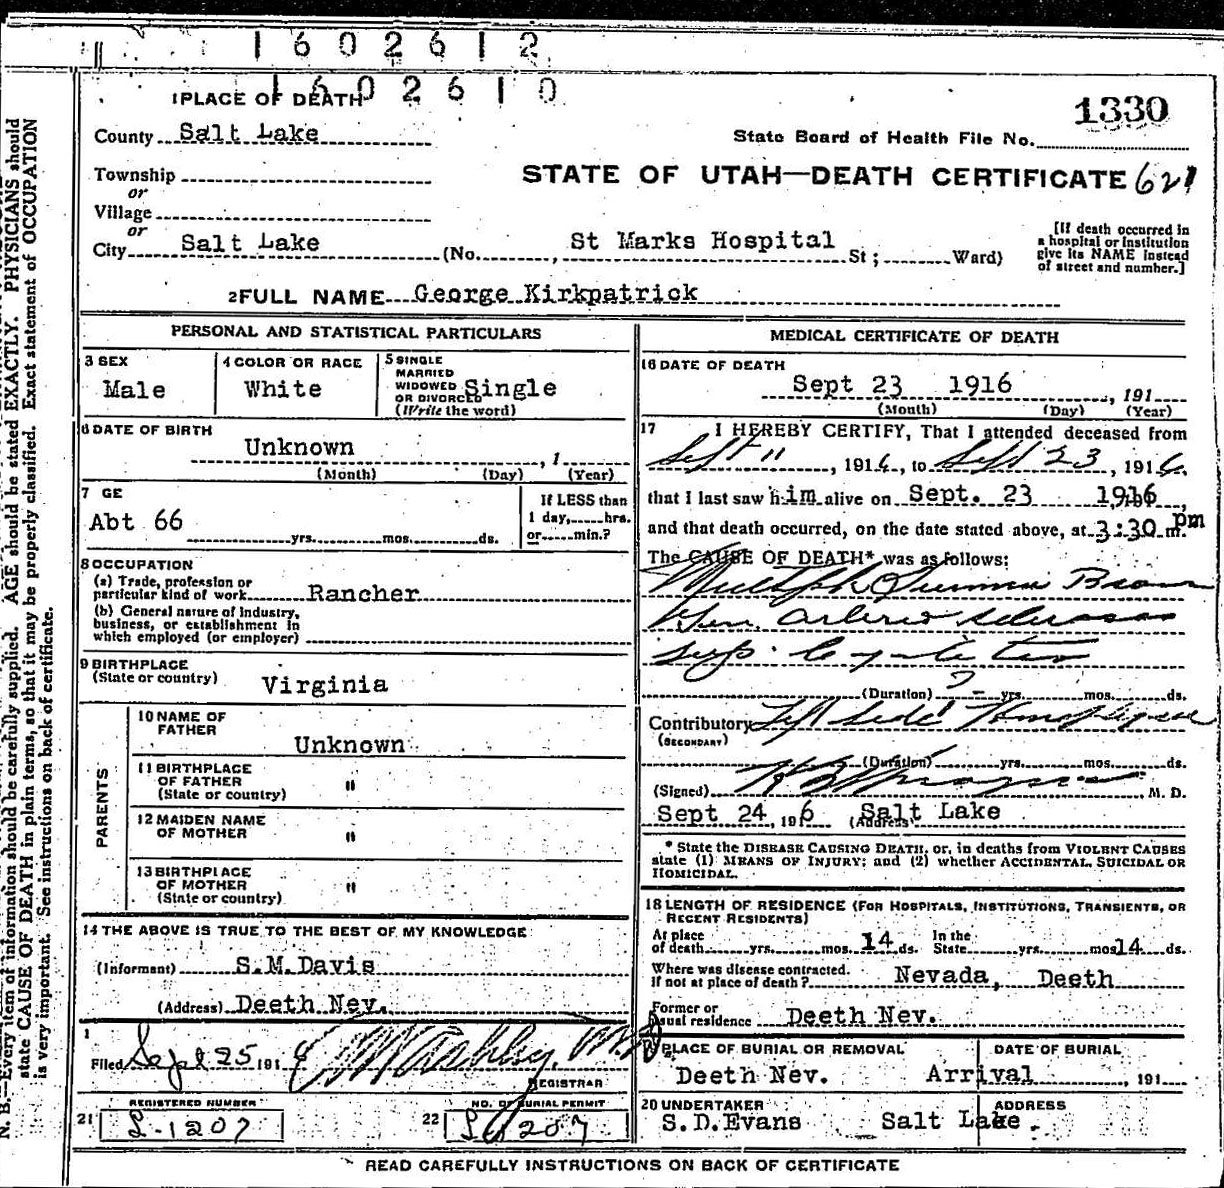 1602612
1602610
1 PLACE OF DEATH
1330
County Salt Lake
State Board of Health File No.
Township
STATE OF UTAH—DEATH CERTIFICATE 621
or
Village
or
City Salt Lake (No. , St Marks Hospital St ; Ward)
[If death occurred in
a hospital or institution
give its NAME instead
of street and number.]
2 FULL NAME George Kirkpatrick
PERSONAL AND STATISTICAL PARTICULARS
3 SEX
Male
4 COLOR OR RACE
White
5 SINGLE
MARRIED
WIDOWED
OR DIVORCED
(Write the word)
Single
6 DATE OF BIRTH
Unknown , 1
(Month) (Day) (Year)
7 GE
Abt 66
yrs. mos. ds.
If LESS than
1 day, hrs.
or min.?
8 OCCUPATION
(a) Trade, profession or
particular kind of work Rancher
(b) General nature of industry,
business, or establishment in
which employed (or employer)
9 BIRTHPLACE
(State or country) Virginia
PARENTS
10 NAME OF
FATHER
Unknown
11 BIRTHPLACE
OF FATHER "
(State or country)
12 MAIDEN NAME
OF MOTHER "
13 BIRTHPLACE
OF MOTHER "
(State or country)
14 THE ABOVE IS TRUE TO THE BEST OF MY KNOWLEDGE
(Informant) S.M.Davis
(Address) Deeth Nev.
1
Filed Sept 25 191 6 M.D.
REGISTRAR
REGISTERED NUMBER
21 S-1207
NO. OF BURIAL PERMIT
22 1207
MEDICAL CERTIFICATE OF DEATH
16 DATE OF DEATH
Sept 23 1916 , 191
(Month) (Day) (Year)
17 I HEREBY CERTIFY, That I attended deceased from
Sept 11 , 1916, to Sept 23, 1916.
that I last saw him alive on Sept. 23 1916,
and that death occurred, on the date stated above, at 3:30 pm m.
The CAUSE OF DEATH* was as follows:
Brain
Gen. arterio sclerosis
(Duration) ? yrs. mos. ds.
Contributory Left side
(SECONDARY)
(Duration) yrs. mos. ds.
(Signed) M. D.
Sept 24, 1916 (Address) Salt Lake
* State the DISEASE CAUSING DEATH, or, in deaths from VIOLENT CAUSES
state (1) MEANS OF INJURY; and (2) whether ACCIDENTAL, SUICIDAL OR
HOMICIDAL.
18 LENGTH OF RESIDENCE (FOR HOSPITALS, INSTITUTIONS, TRANSIENTS, OR
RECENT RESIDENTS)
At place
of death yrs. mos. 14 ds. In the
State yrs. mos 14 ds.
Where was disease contracted.
If not at place of death? Nevada, Deeth
Former or
usual residence Deeth Nev.
PLACE OF BURIAL OR REMOVAL
Deeth Nev.
DATE OF BURIAL
Arrival , 191
20 UNDERTAKER
S.D.Evans
ADDRESS
Salt Lake.
READ CAREFULLY INSTRUCTIONS ON BACK OF CERTIFICATE
N. B.—Every item of information should be carefully supplied. AGE should be stated EXACTLY. PHYSICIANS should
state CAUSE OF DEATH in plain terms, so that it may be properly classified. Exact statement of OCCUPATION
is very important. See instructions on back of certificate.